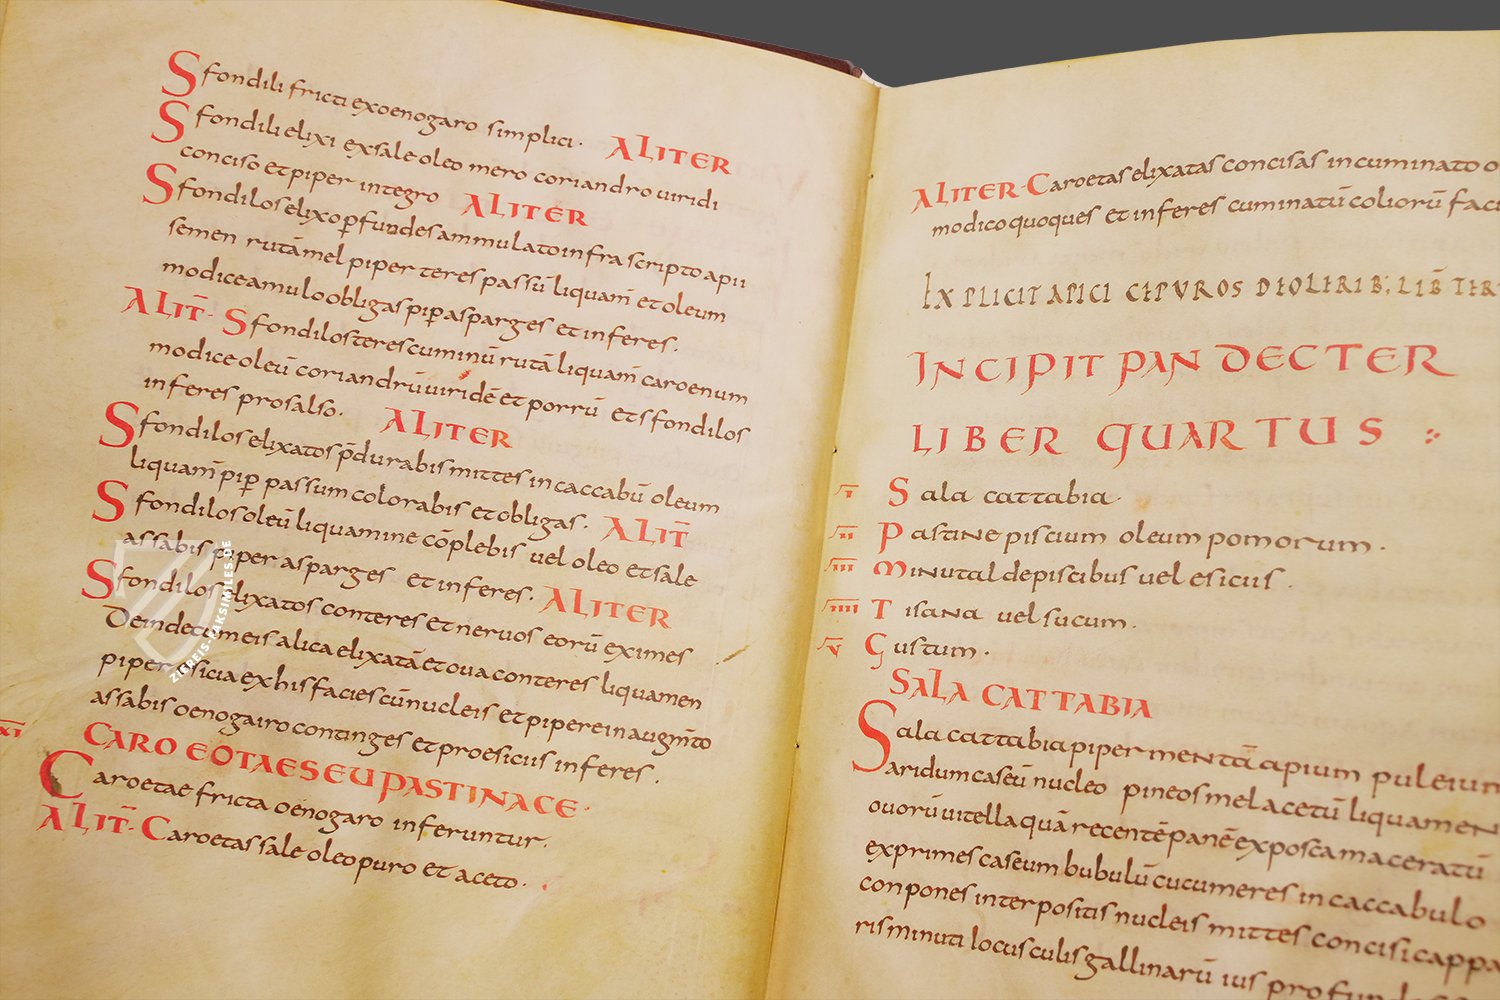 Sfondili fricti exoenogaro simplici · ALITER
Sfondili elixi exsale oleo mero coriandro uiridi
conciso et piper integro ALITER
Sfondilos elixo ꝑfundes ammulato infra scripto apii
semen rutā mel piper teres passū liquam̄ et oleum
modice amulo obligas piꝑ asparges et inferes.
ALIT̄· Sfondilos teres cuminū rutā liquam̄ caroenum
modice oleū coriandrū uiridē et porrū et sfondilos
inferes pro salso. ALITER
Sfondilos elixatos p̄durabis mittes in caccabū oleum
liquam̄ piꝑ passum colorabis et obligas. ALIT̄
Sfondilos oleū liquamine cōplebis uel oleo et sale
assabis piper asparges et inferes. ALITER
Sfondilos elixatos conteres et neruos eorū eximes
Deinde cum eis alica elixatā et oua conteres liquamen
piper isicia ex his facies cū nucleis et pipere in augm̄to
assabis oenogairo continges et pro esicius inferes.
XI CARO EOTAE SEU PASTINACE·
Caroetae fricta oenogaro inferuntur.
ALIT̄· Caroetas sale oleo puro et aceto·
ALITER· Caroetas elixatas concisas in cuminato o
modico quoques et inferes cuminatū coliorū facı
EXPLICIT APICI CEPVROS DEOLERIB; LIB̄ TER
INCIPIT PANDECTER
LIBER QUARTUS :·
I Sala cattabia·
II Pastine piscium oleum pomorum·
III Minutal de piscibus uel esicius.
IIII Tisana uel sucum.
V Gustum·
SALA CATTABIA
Sala cattabia piper mentā apium puleium
aridum caseū nucleo pineos mel acetū liquamen
ouorū uitella quā recentē panē ex posca maceratū
exprimes caseum bubulū cucumeres in caccabulo
conpones interpositis nucleis mittes concisi cappa
ris minuti locusculis gallinarū ius profund
ZIEREIS-FAKSIMILES.DE